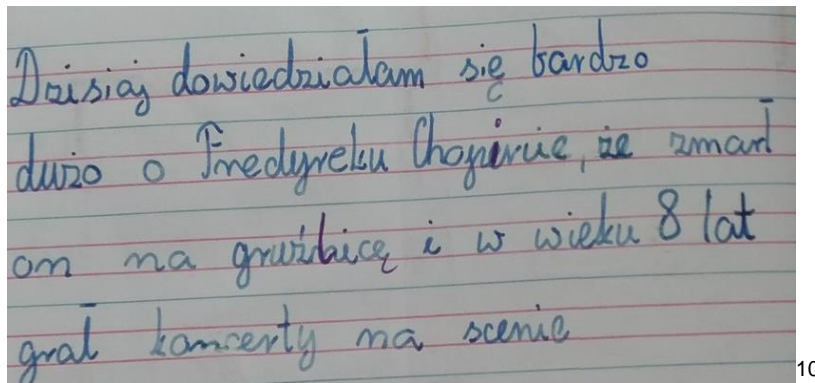 Dzisiaj dowiedziałam się bardzo
dużo o Fredyreku Chopinie, że zmarł
on na gruźbicę i w wieku 8 lat
grał koncerty na scenie
10